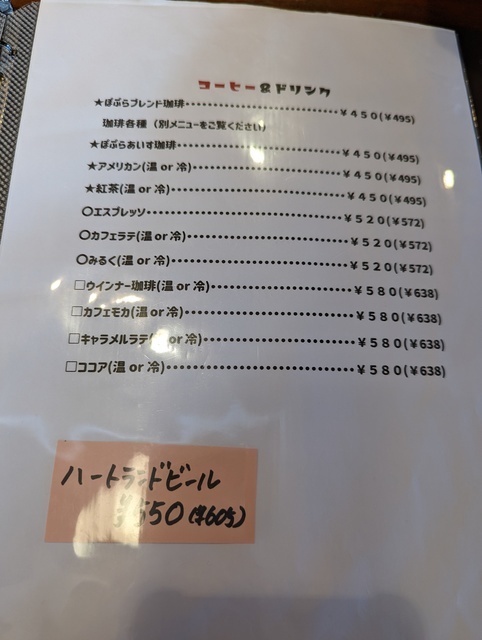 コーヒー&ドリンク
★ぽぷらブレンド珈琲・・・・・・・・・・・・・・・・・・・・・・・・・・・・・・¥450(¥495)
珈琲各種(別メニューをご覧ください)
★ぽぷらあいす珈琲・・・・・・・・・・・・・・・・・・・・・・・・・・・・・・¥450(¥495)
★アメリカン(温 or 冷)・・・・・・・・・・・・・・・・・・・・・・・・・・・・¥450(¥495)
★紅茶(温 or 冷)・・・・・・・・・・・・・・・・・・・・・・・・・・・・・・・・¥450(¥495)
〇エスプレッソ・・・・・・・・・・・・・・・・・・・・・・・・・・・・・・・・・・¥520(¥572)
〇カフェラテ(温 or 冷)・・・・・・・・・・・・・・・・・・・・・・・・・・・・¥520(¥572)
〇みるく(温 or 冷)・・・・・・・・・・・・・・・・・・・・・・・・・・・・・・・・¥520(¥572)
□ウインナー珈琲(温 or 冷)・・・・・・・・・・・・・・・・・・・・・・・・¥580(¥638)
□カフェモカ(温 or 冷)・・・・・・・・・・・・・・・・・・・・・・・・・・・・¥580(¥638)
□キャラメルラテ(温 or 冷)・・・・・・・・・・・・・・・・・・・・・・・・¥580(¥638)
□ココア(温 or 冷)・・・・・・・・・・・・・・・・・・・・・・・・・・・・・・・・¥580(¥638)
ハートランドビール
¥550(¥605)